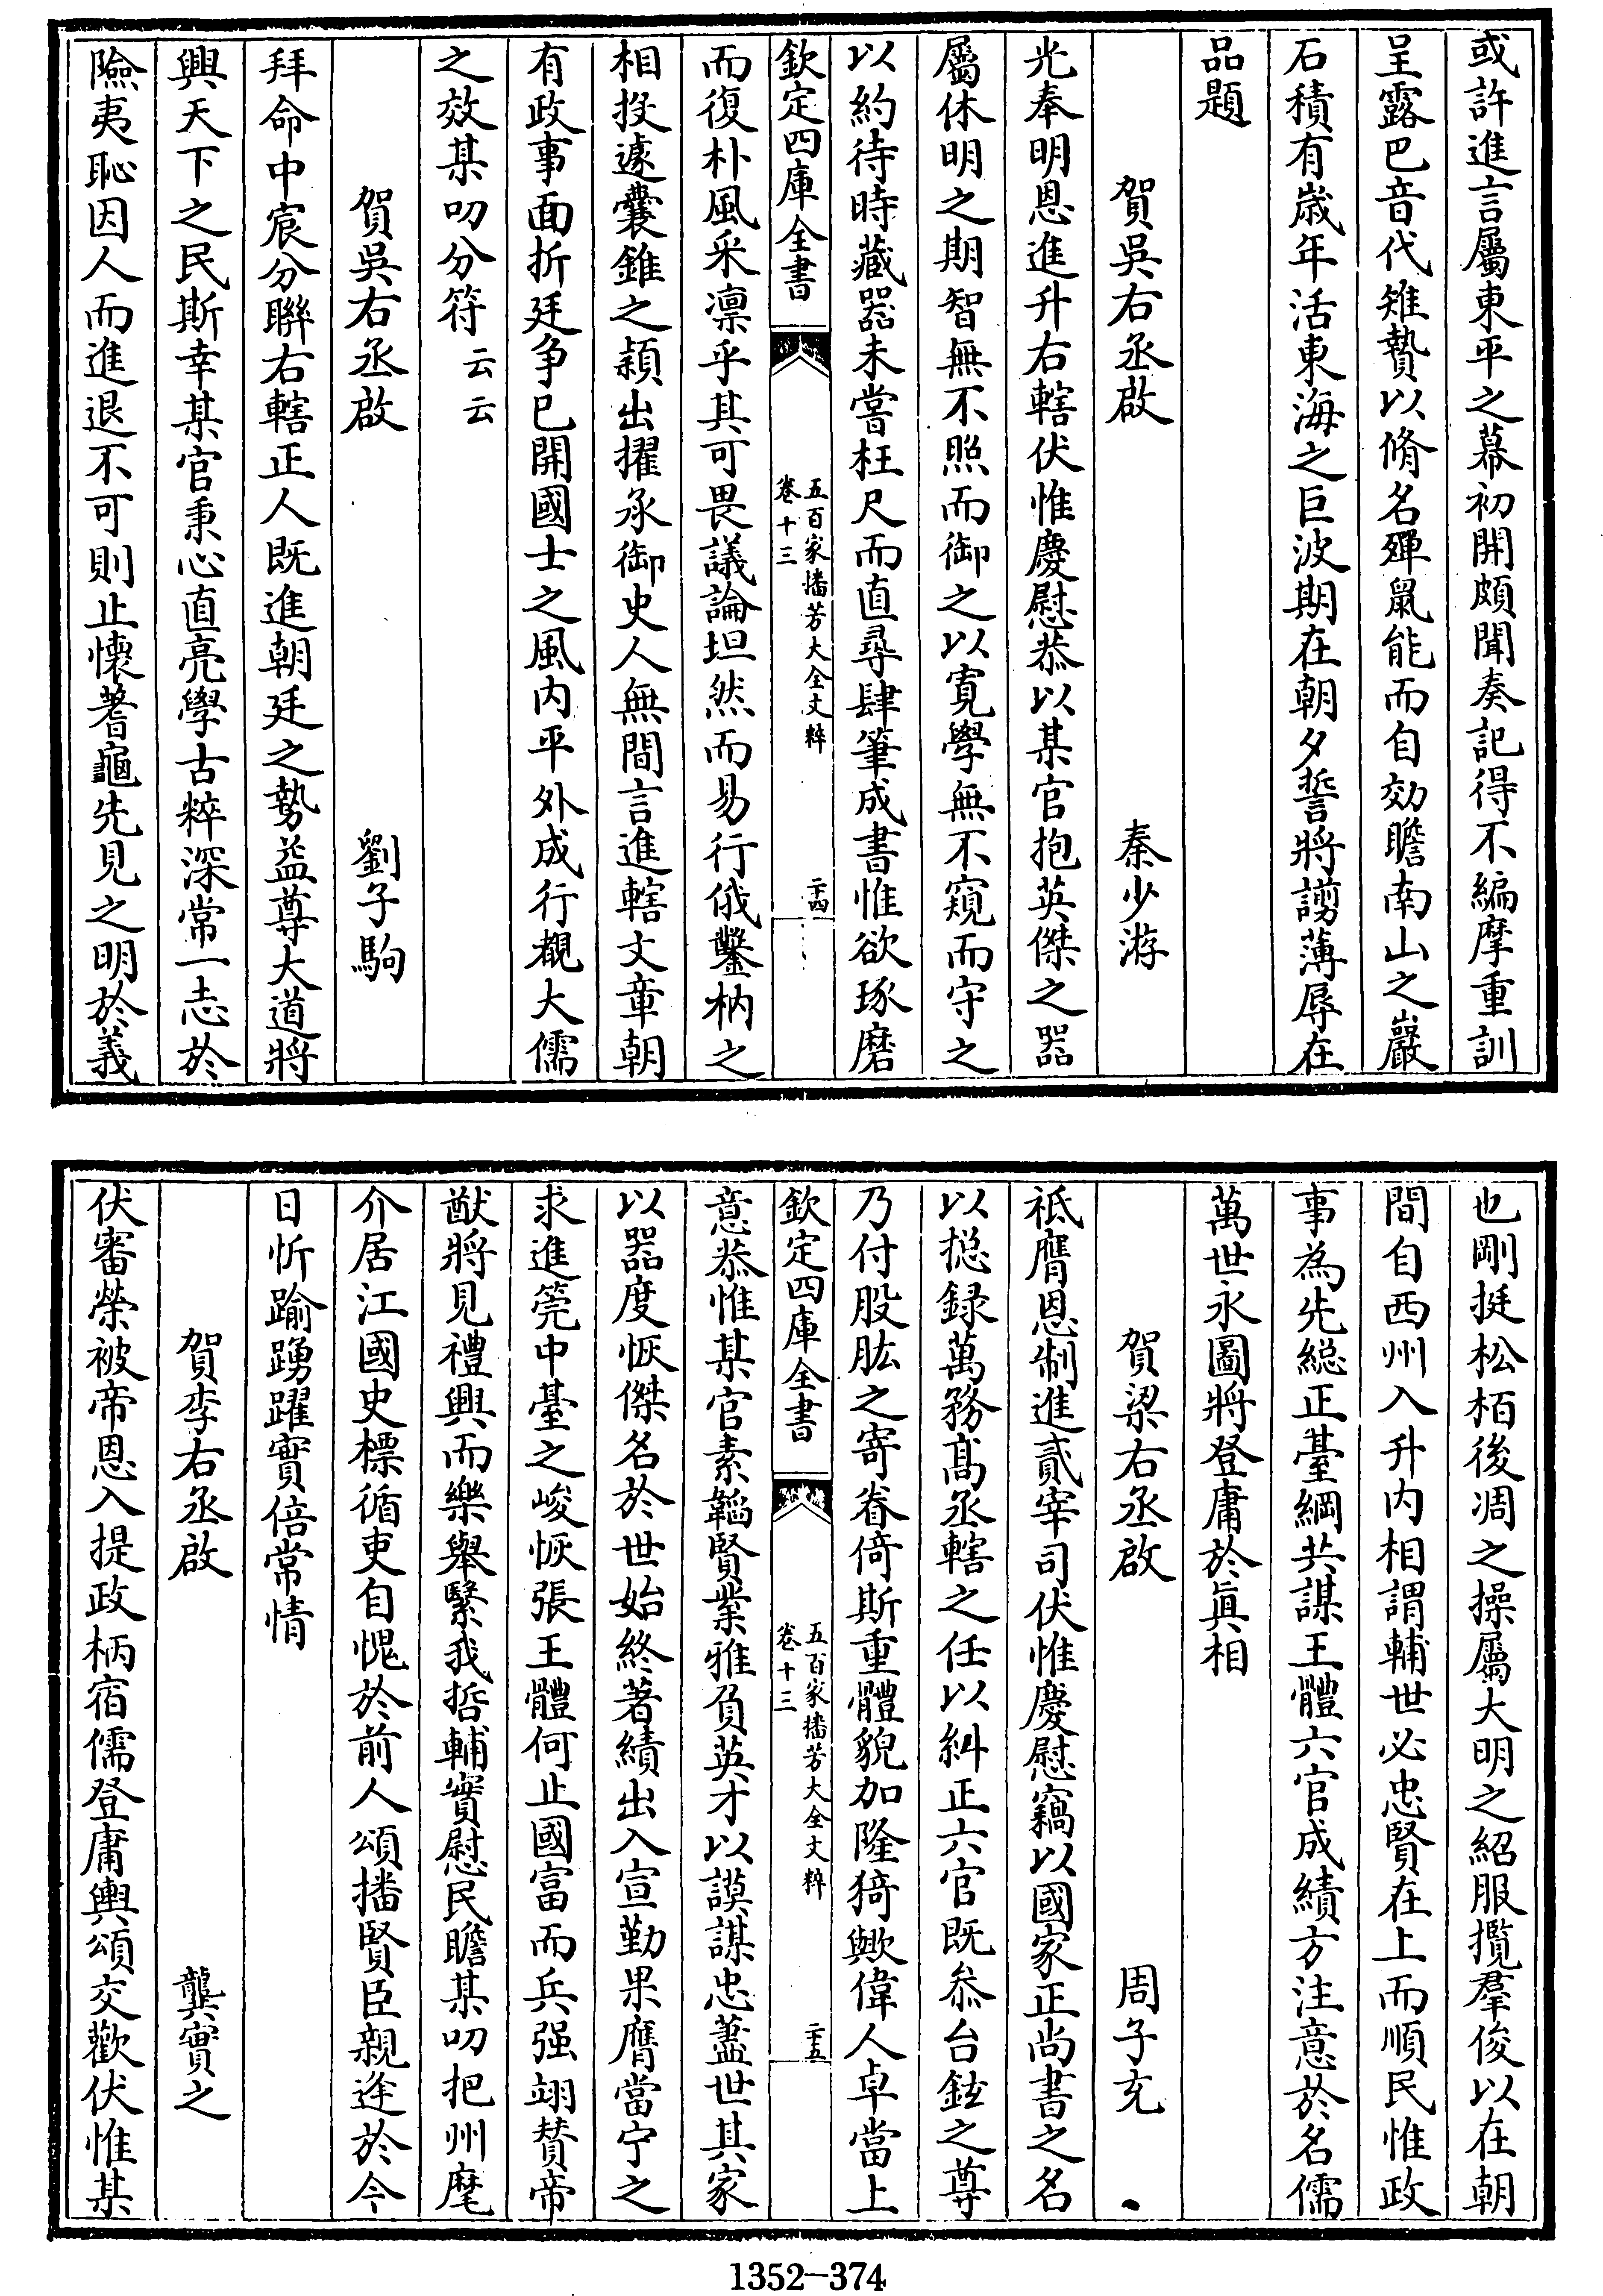 或許進言屬東平之幕初開頗聞奏記得不編摩重訓
呈露巴音代雉贄以脩名殫鼠能而自効瞻南山之巖
石積有歳年活東海之巨波期在朝夕誓將謭薄辱在
品題
賀吳右丞啟 秦少游
光奉明恩進升右轄伏惟慶慰恭以某官抱英傑之器
屬休明之期智無不照而御之以寛學無不窺而守之
以約待時藏器未嘗枉尺而直尋肆筆成書惟欲琢磨
欽定四庫全書 五百家播芳大全文粹 卷十三 二十四
而復朴風采凛乎其可畏議論坦然而易行俄鑿枘之
相投遽囊錐之穎出擢承御史人無間言進轄文章朝
有政事面折廷争已開國士之風内平外成行覩大儒
之效某叨分符云云
賀吳右丞啟 劉子駒
拜命中宸分聯右轄正人既進朝廷之勢益尊大道將
興天下之民斯幸某官秉心直亮學古粹深常一志於
險夷恥因人而進退不可則止懐蓍龜先見之明於義
也剛挺松栢後凋之操屬大明之紹服攬羣俊以在朝
間自西州入升内相謂輔世必忠賢在上而順民惟政
事為先総正臺綱共謀王體六官成績方注意於名儒
萬世永圖將登庸於真相
賀梁右丞啟 周子充
祗膺恩制進貳宰司伏惟慶慰竊以國家正尚書之名
以揔録萬務髙丞轄之任以糾正六官既叅台鉉之尊
乃付股肱之寄眷倚斯重體貌加隆猗歟偉人卓當上
欽定四庫全書 五百家播芳大全文粹 卷十三 二十五
意恭惟某官素韜賢業雅負英才以謨謀忠藎世其家
以器度恢傑名於世始終著績出入宣勤果膺當宁之
求進筦中臺之峻恢張王體何止國富而兵强翊賛帝
猷將見禮興而樂舉繄我哲輔實慰民瞻某叨把州麾
介居江國史標循吏自愧於前人頌播賢臣親逢於今
日忻踰踴躍實倍常情
賀李右丞啟 龔實之
伏審榮被帝恩入提政柄宿儒登庸輿頌交歡伏惟某
1352-374